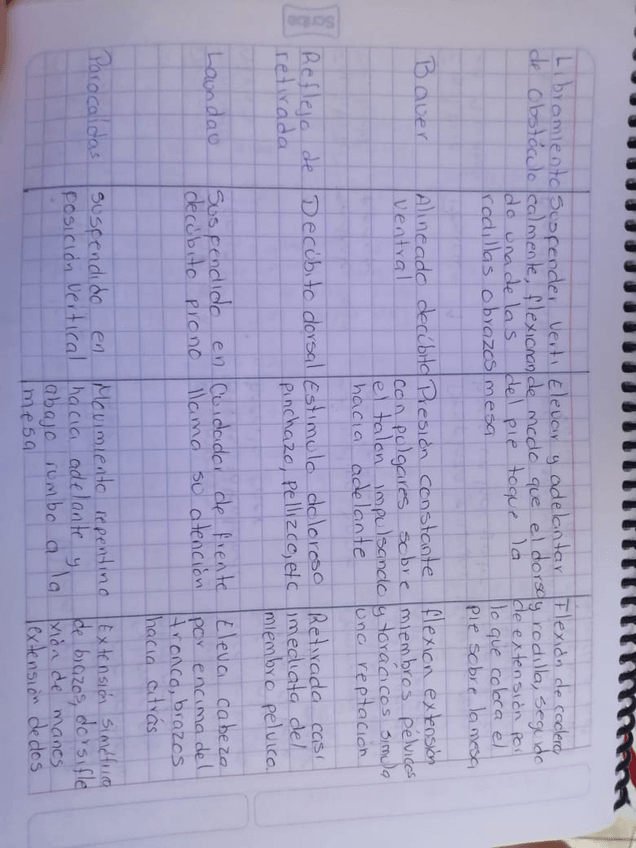 Scribe
Libramiento
de obstáculo
Suspender verti
calmente, flexionan
do una de las
rodillas o brazos
Elevar y adelantar
de modo que el dorso
del pie toque la
mesa
Flexión de cadera
y rodilla, seguido
de extensión por
lo que coloca el
pie sobre la mesa
Baver
Alineado decúbito
ventral
Presión constante
con pulgares sobre
el talon impulsando
hacia adelante
flexion extensión
miembros pélvicos
y torácicos simula
una reptación
Reflejo de
retirada
Decúbito dorsal
Estimulo doloroso
pinchazo, pellizco, etc
Retirada casi
imediata del
miembro pelvico.
Landao
Suspendido en
decúbito prono
Cuidador de frente
llama su atención
Eleva cabeza
por encima del
tronco, brazos
hacia atrás
Paracaídas
suspendido en
posición vertical
Movimiento repentino
hacia adelante y
abajo rumbo a la
mesa
Extensión simétrica
de brazos, dorsifle
xión de manos
extensión dedos